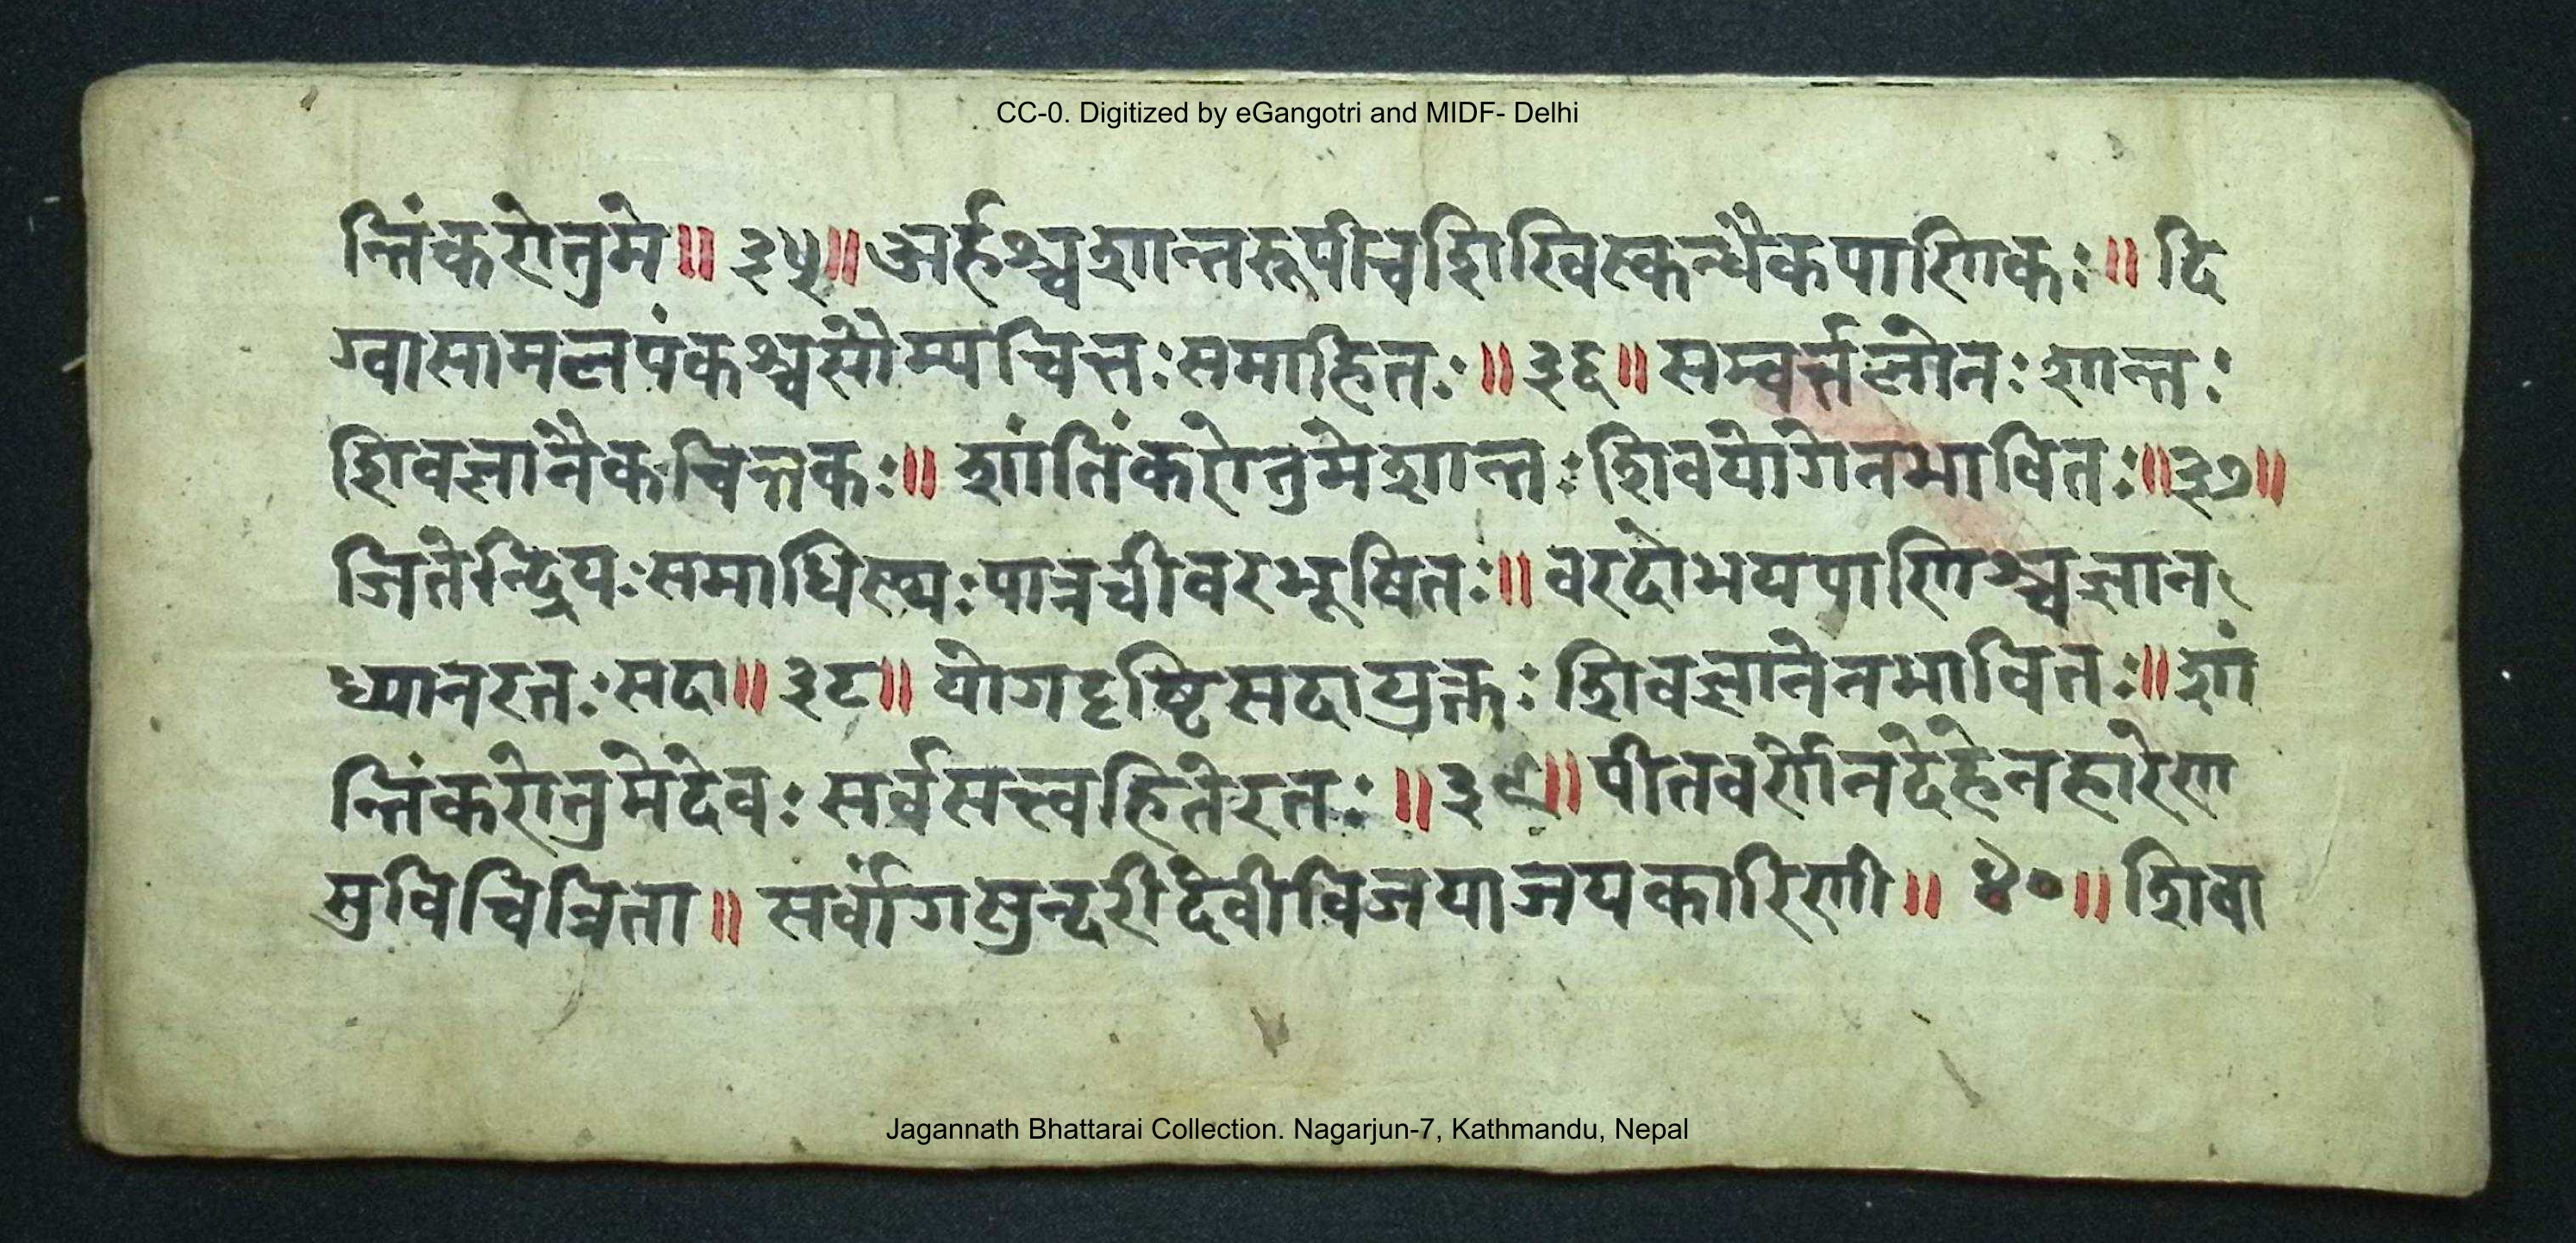 CC-0. Digitized by eGangotri and MIDF- Delhi
न्तिंकरोतुमे॥ ३५॥अर्हश्चशान्तरूपीचशिखिस्कन्धैकपाणिकः॥ दि
ग्वासामलपंकश्चसौम्यचित्तःसमाहितः॥ ३६॥ सम्वर्त्तलोनःशान्तः
शिवज्ञानैकचिन्तकः॥ शांतिंकरोतुमेशान्तःशिवयोगेनभावितः॥३७॥
जितेन्द्रियःसमाधिस्थ्यःपात्रचीवरभूषितः॥ वरदोभयपाणिश्चज्ञान
ध्यानरतःसदा॥ ३८॥ योगदृष्टिसदाप्रक्तःशिवज्ञानेनभावितः॥ शां
न्तिंकरोतुमेदेवः सर्वसत्त्वहितेरतः॥३९॥ पीतवर्णेनदेहेनहारेण
सुविचित्रिता॥ सर्वांगसुन्दरीदेवीविजयाजयकारिणी॥ ४०॥ शिवा
Jagannath Bhattarai Collection. Nagarjun-7, Kathmandu, Nepal